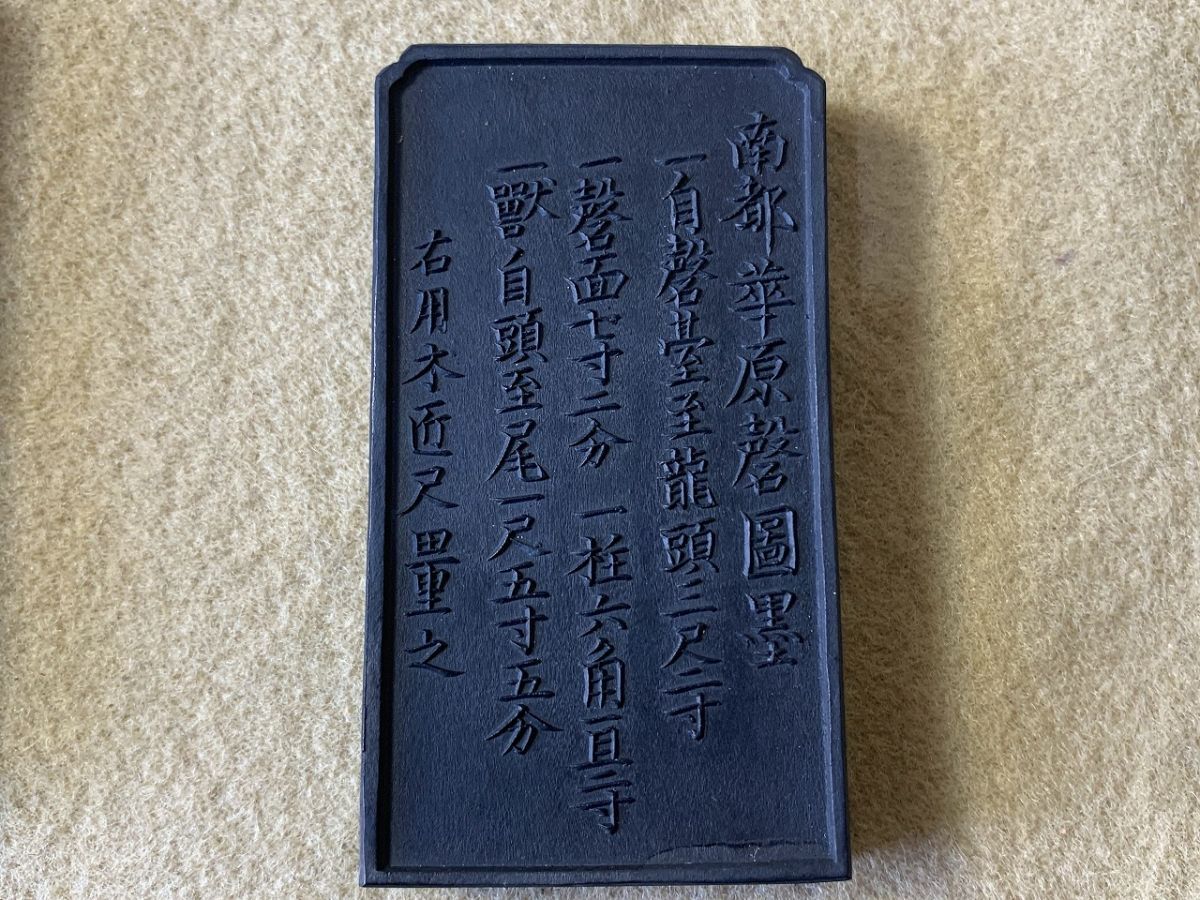 南都華原磬圖墨
一自磬臺至龍頭三尺二寸
一磬面七寸二分 一柱六角亘二寸
一獸自頭至尾一尺五寸五分
右用木匠尺量之